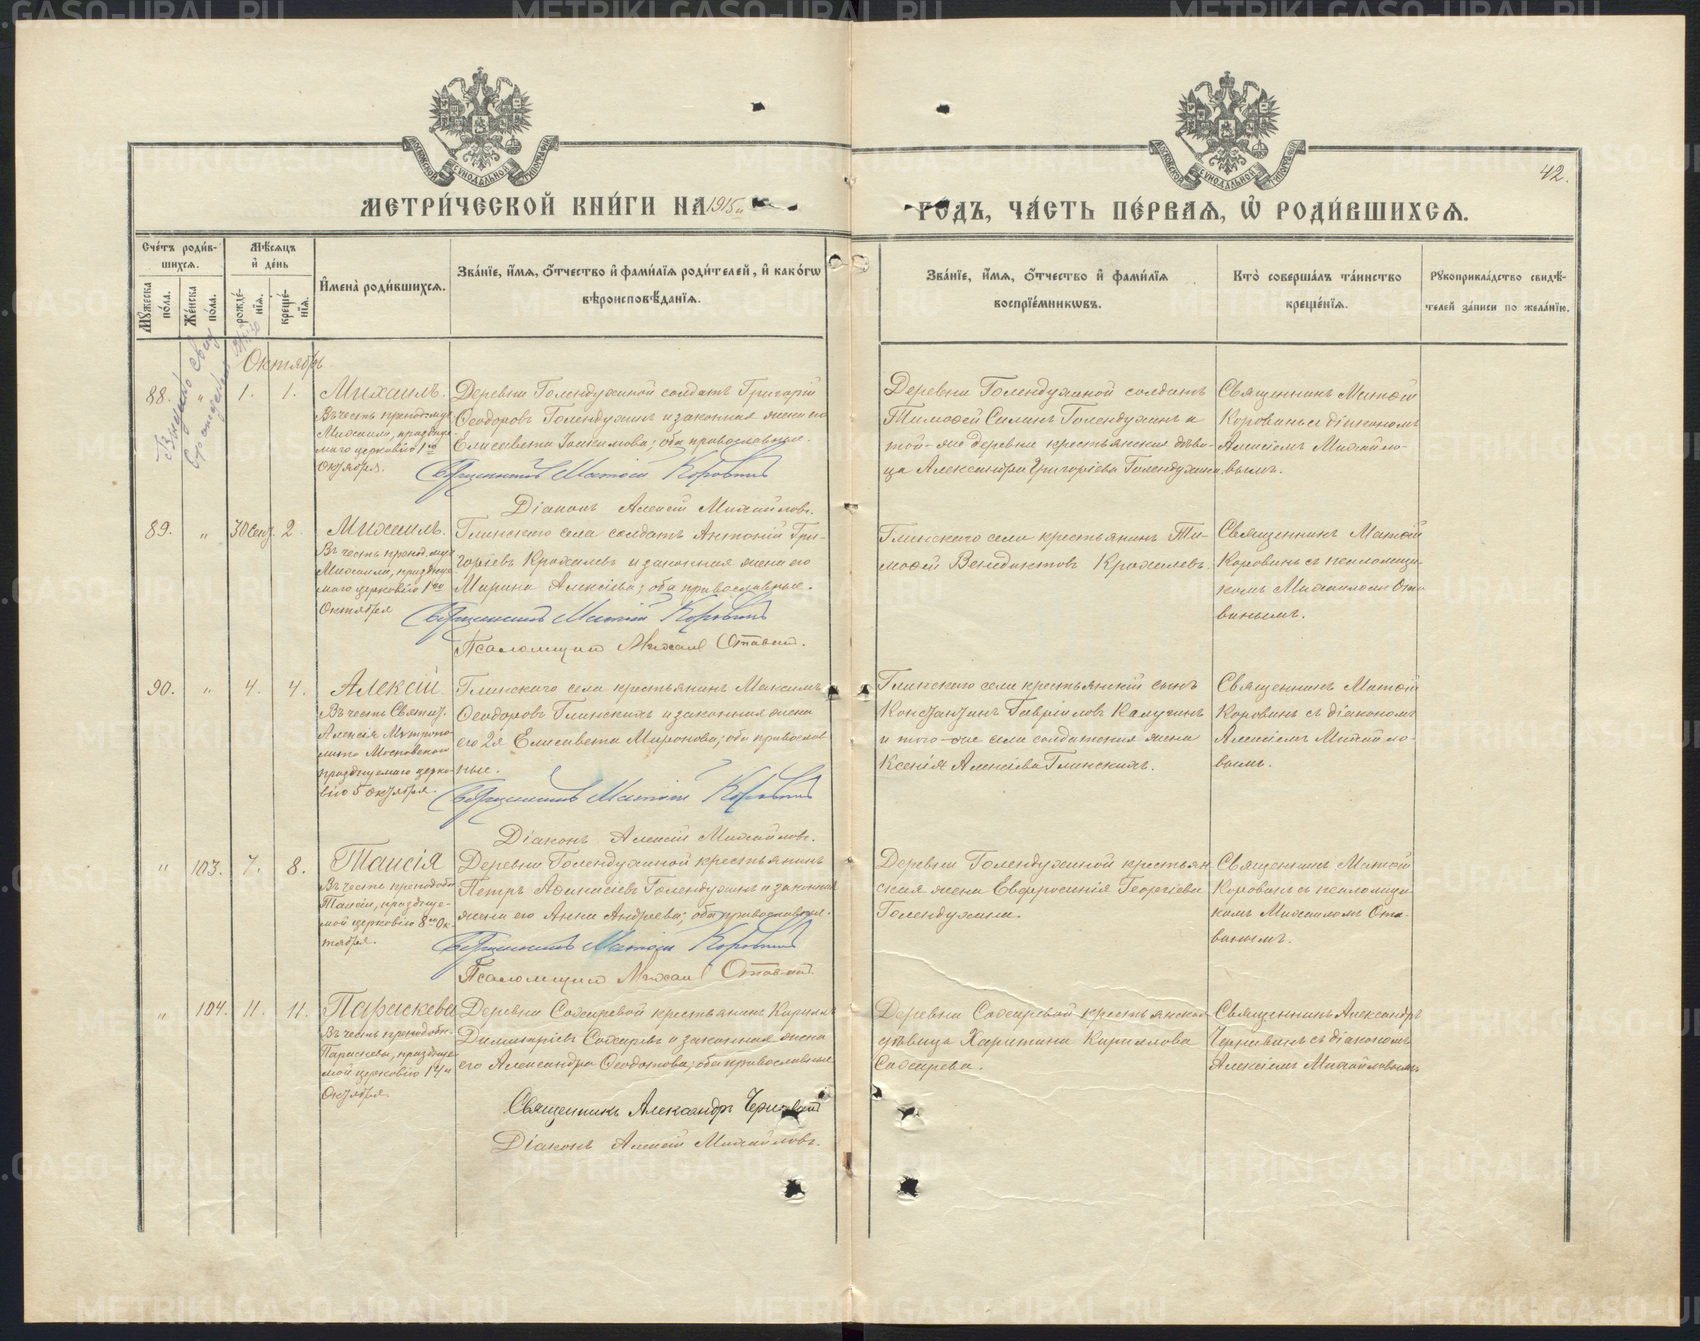 МЕТРИ́ЧЕСКОЙ КНИ́ГИ НА 1915 й
ГО́ДЪ, ЧА́СТЬ ПЕ́РВАЯ, Ѡ РОДИ́ВШИХСЯ.
42.
Сче́тъ роди́в-
шихся.
Мѣ́сяцъ
и де́нь
Мꙋ́жеска по́ла.
Же́нска по́ла.
рожде́-
нїя.
креще́-
нїя.
Имена̀ роди́вшихся.
Зва́нїе, и́мя, о́тчество и фами́лїя роди́телей, и како́гѡ
вѣроисповѣ́данїя.
Зва́нїе, и́мя, о́тчество и фами́лїя
воспрїе́мникѡвъ.
Кто̀ соверша́лъ та́инство
креще́нїя.
Рꙋкоприкла́дство свидѣ́-
телей за́писи по жела́нїю.
Октябрь
88. " 1. 1.
Михаилъ.
Въ честь преподмуч
Михаила, праздцуе
маго церковію 1го
Октября.
Деревни Голендухиной солдатъ Григорій
Ѳеодоровъ Голендухинъ и законная жена его
Елисавета ; оба православные.
Священникъ Матѳій Коровинъ
Діаконъ Алексій Михайловъ.
Деревни Голендухиной солдатъ
Тимоѳей Силинъ Голендухинъ и
той-же деревни крестьянская дѣви-
ца Александра Григоріева Голендухина.
Священникъ Матѳій
Коровинъ съ діакономъ
Алексіемъ Михайло-
вымъ.
89. " 30 сент. 2.
Михаилъ.
Въ честь препод.муч
Михаила, праздцуе
маго церковію 1го
Октября
Глинскаго села солдатъ Антоній Гри-
горіевъ Крохалевъ и законная жена его
Марина Алексіева; оба православные.
Священникъ Матѳій Коровинъ
Псаломщикъ Михаил
Глинскаго села крестьянинъ Ти-
моѳей Венедиктовъ Крохалевъ.
Священникъ Матѳій
Коровинъ съ псаломщи-
комъ Михаиломъ
90. " 4. 4.
Алексій
Въ честь Святит.
Алексія Митропо-
лита Московскаго
празднуемаго церко-
вію 5 октября.
Глинскаго села крестьянинъ Максимъ
Ѳеодоровъ Глинскихъ и законная жена
его 2я Елисавета Миронова; оба православ
ные.
Священникъ Матѳій Коровинъ
Діаконъ Алексій Михайловъ.
Глинскаго села крестьянскій сынъ
Константинъ Гавріиловъ Калугинъ
и того-же села солдатская жена
Ксенія Алексіева Глинскихъ.
Священникъ Матѳій
Коровинъ съ діакономъ
Алексіемъ Михайло-
вымъ.
" 103. 7. 8.
Таисія
Въ честь преподоб
Таисіи, празднуе-
мой церковію 8го Ок-
тября.
Деревни Голендухиной крестьянинъ
Петръ Аѳанасіевъ Голендухинъ и законная
жена его Анна Андреева; оба православные.
Священникъ Матѳій Коровинъ
Псаломщикъ Михаил
Деревни Голендухиной крестьян
ская жена Евфросинія Георгіева
Голендухина.
Священникъ Матѳій
Коровинъ съ псаломщи-
комъ Михаиломъ
" 104. 11. 11.
Параскева
Въ честь преподобн.
Параскевы, празднуе
мой церковію 14го
Октября
Деревни Сохаревой крестьянинъ Кириллъ
Димитріевъ Сохаревъ и законная жена
его Александра Ѳеодотова; оба православные
Священникъ Александръ
Діаконъ Алексій Михайловъ.
Деревни Сохаревой крестьянская
дѣвица Харитина Кириллова
Сохарева.
Священникъ Александръ
съ діакономъ
Алексіемъ Михайловымъ
METRIKI.GASO-URAL.RU